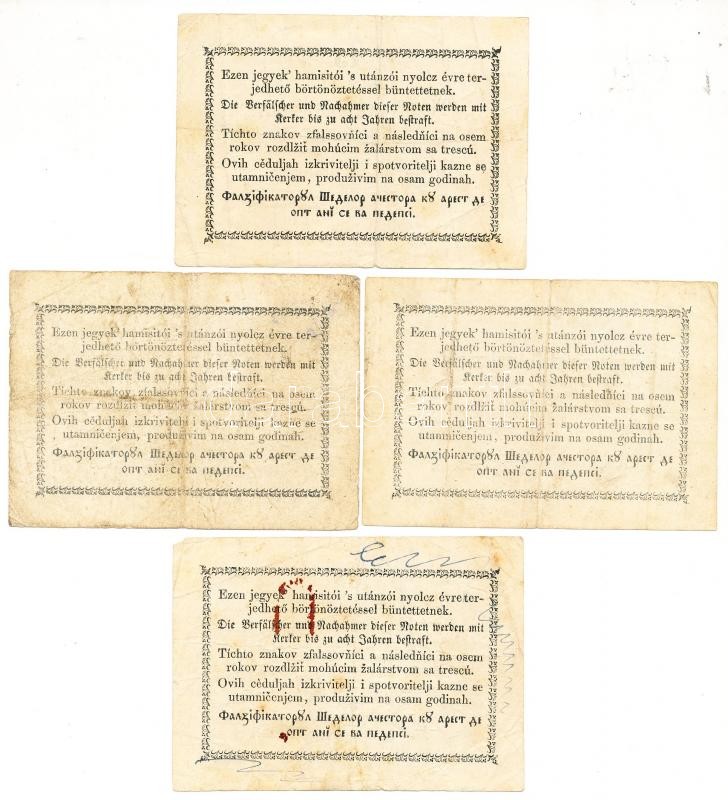 Ezen jegyek' hamisitói 's utánzói nyolcz évre ter-
jedhető börtönöztetéssel büntettetnek.
Die Verfälscher und Nachahmer dieser Noten werden mit
Kerker bis zu acht Jahren bestraft.
Tíchto znakov zfalssovňíci a následňíci na osem
rokov rozdlžiť mohúcim žalárstvom sa trescú.
Ovih cěduljah izkrivitelji i spotvoritelji kazne se
utamničenjem, produživim na osam godinah.
Фалзіфікаторꙋл Шеделор ачестора кꙋ арест де
опт анĭ се ва педепсі.
Ezen jegyek' hamisitói 's utánzói nyolcz évre ter-
jedhető börtönöztetéssel büntettetnek.
Die Verfälscher und Nachahmer dieser Noten werden mit
Kerker bis zu acht Jahren bestraft.
Tíchto znakov zfalssovňíci a následňíci na osem
rokov rozdlžiť mohúcim žalárstvom sa trescú.
Ovih cěduljah izkrivitelji i spotvoritelji kazne se
utamničenjem, produživim na osam godinah.
Фалзіфікаторꙋл Шеделор ачестора кꙋ арест де
опт анĭ се ва педепсі.
Ezen jegyek' hamisitói 's utánzói nyolcz évre ter-
jedhető börtönöztetéssel büntettetnek.
Die Verfälscher und Nachahmer dieser Noten werden mit
Kerker bis zu acht Jahren bestraft.
Tíchto znakov zfalssovňíci a následňíci na osem
rokov rozdlžiť mohúcim žalárstvom sa trescú.
Ovih cěduljah izkrivitelji i spotvoritelji kazne se
utamničenjem, produživim na osam godinah.
Фалзіфікаторꙋл Шеделор ачестора кꙋ арест де
опт анĭ се ва педепсі.
Ezen jegyek' hamisitói 's utánzói nyolcz évre ter-
jedhető börtönöztetéssel büntettetnek.
Die Verfälscher und Nachahmer dieser Noten werden mit
Kerker bis zu acht Jahren bestraft.
Tíchto znakov zfalssovňíci a následňíci na osem
rokov rozdlžiť mohúcim žalárstvom sa trescú.
Ovih cěduljah izkrivitelji i spotvoritelji kazne se
utamničenjem, produživim na osam godinah.
Фалзіфікаторꙋл Шеделор ачестора кꙋ арест де
опт анĭ се ва педепсі.